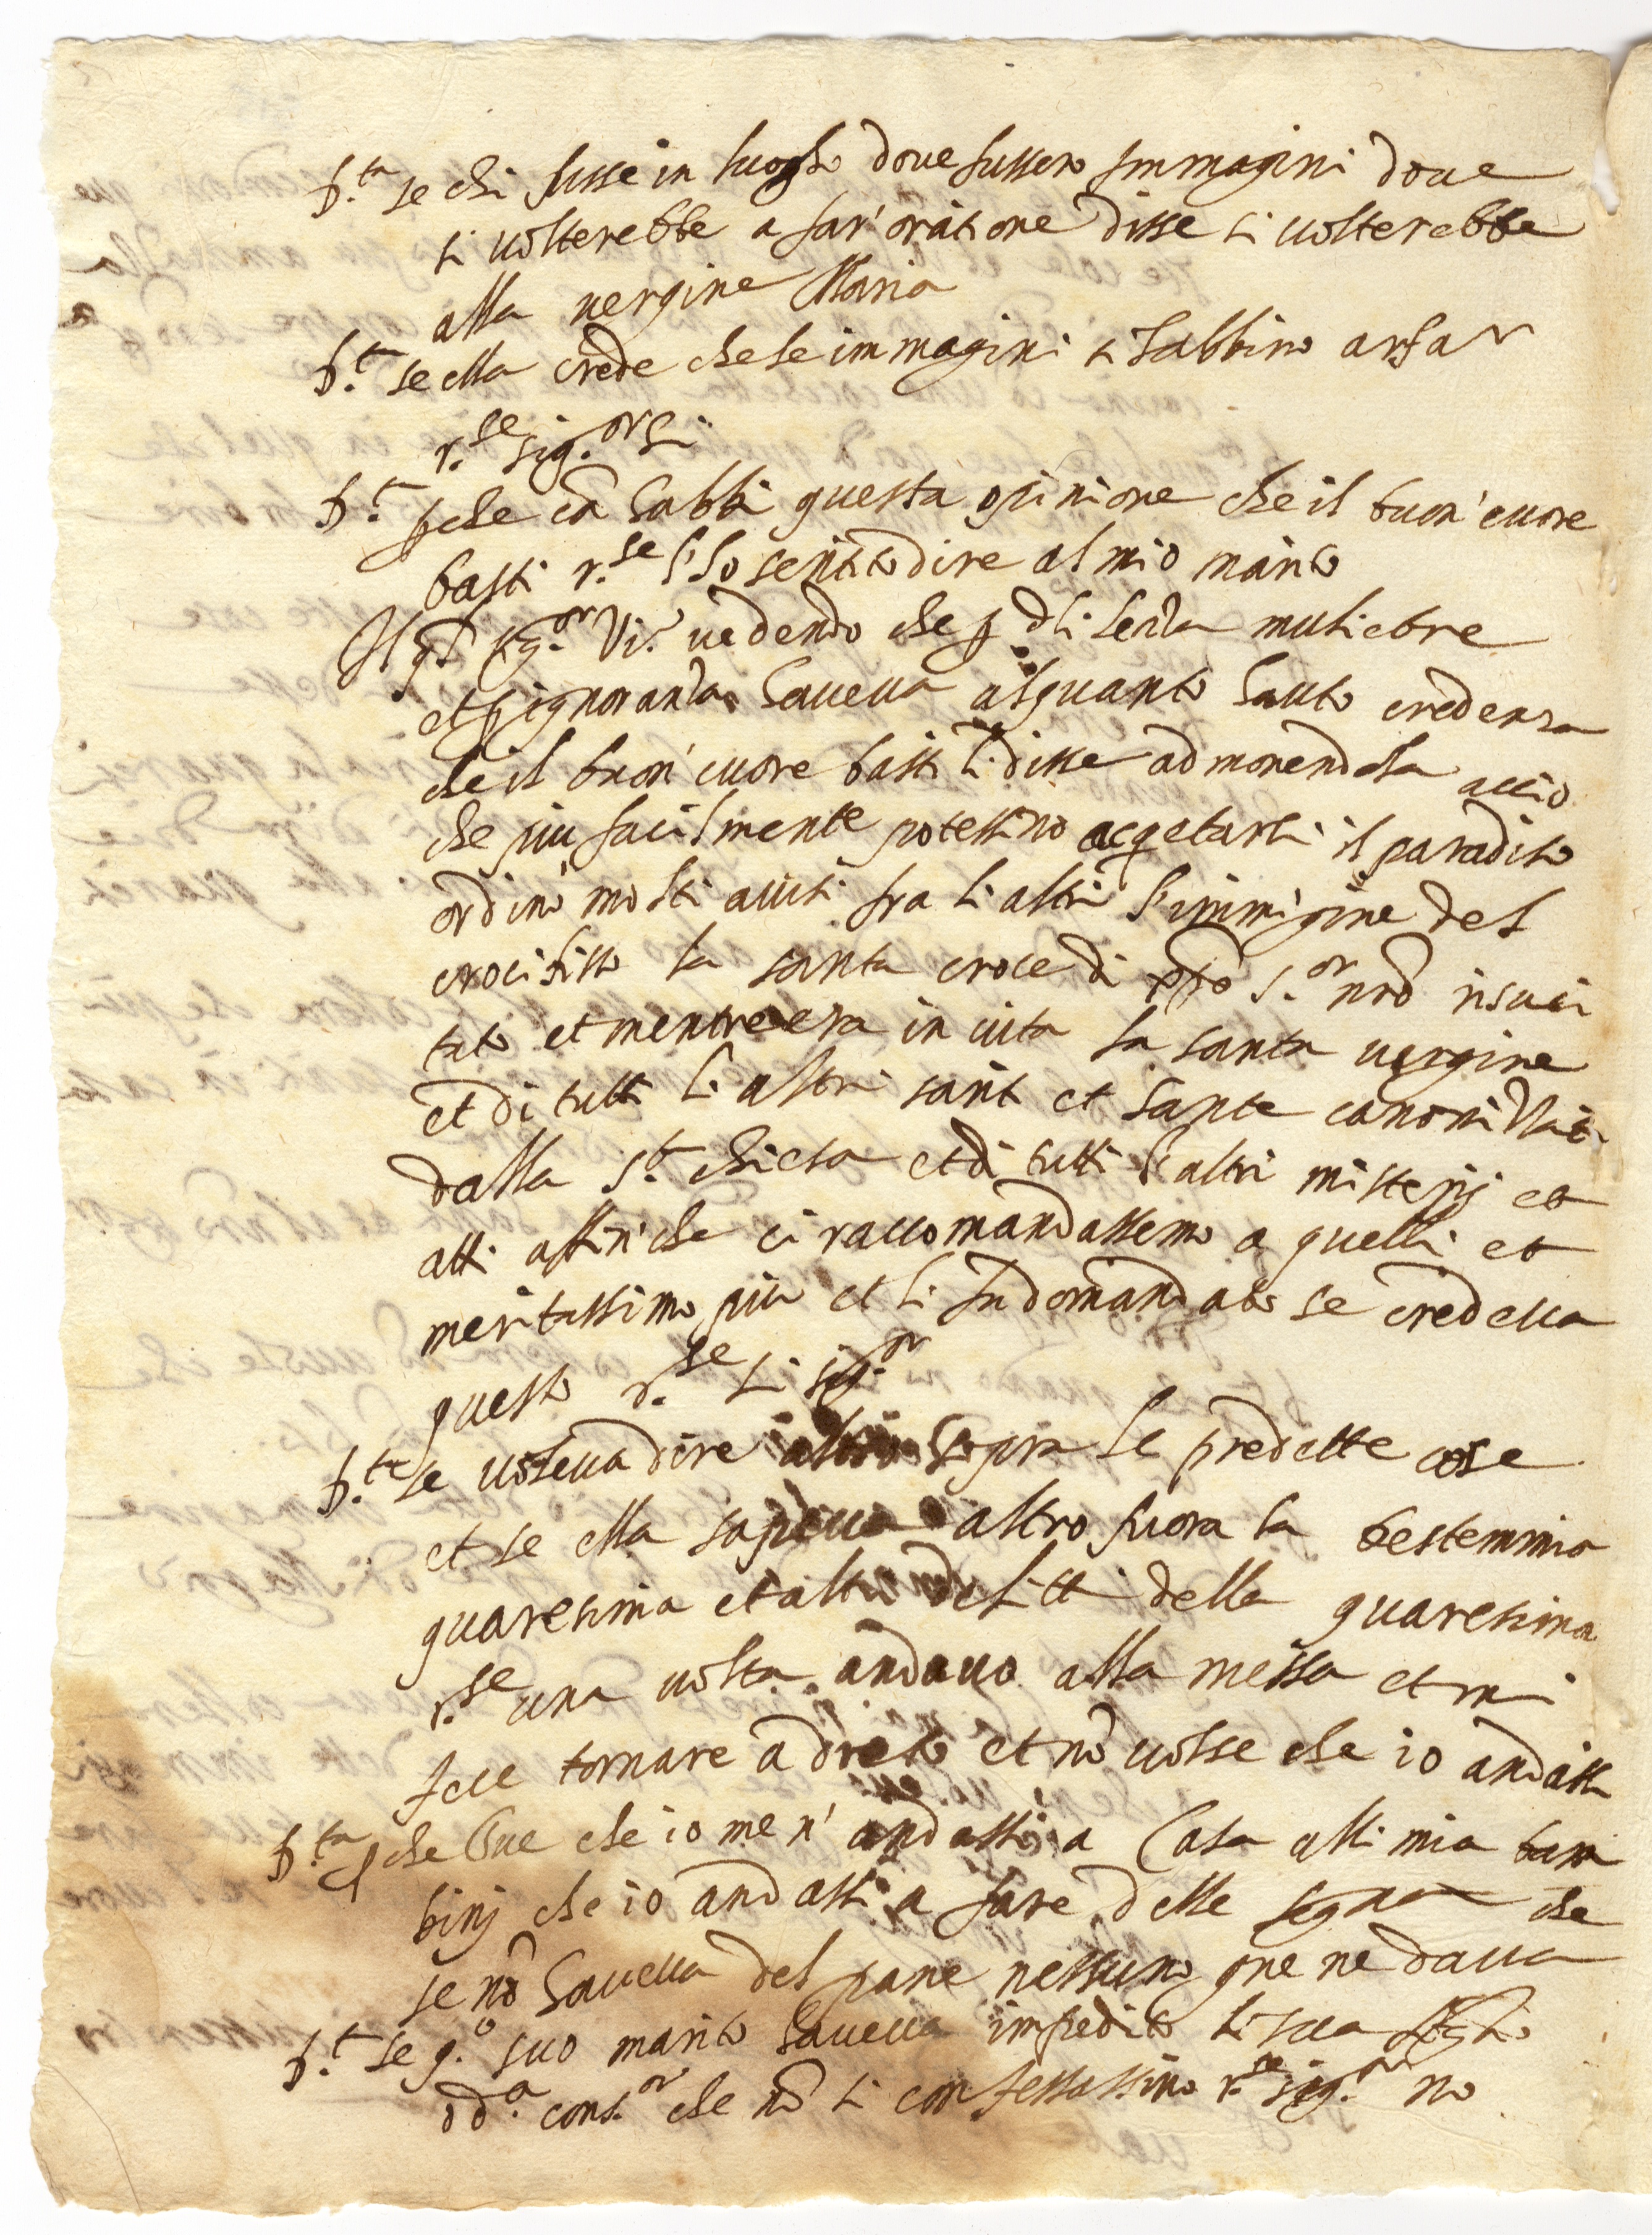 D.ta se chi fusse in luogho dove fussero Immagini dove
si volterebbe a far' oratione disse si volterebbe
alla vergine Maria
D.t se ella crede che le immagini si habbino a
r.se sig.or si
D.t p che habbi questa opinione che il buon' cuore
basti r.se l'ho sentito dire al mio marito
Il Sig.or Vic.o vedendo che p muliebre
et p ignoranza haveva alquanto hauto credenza
che il buon' cuore basti li disse admonendola accio
che piu facilmente potessino acqetarsi il paradiso
ordino molti aiuti fra li altri l'immigine del
crocifisso la santa croce di s.or nrõ risuci
tato et mentre era in vita la santa vergine
et di tutti li altri santi et sante canonizzati
dalla S.t chiesa et di tutti li altri misterij et
atti affin' che ci raccomandassemo a quelli et
meritassimo piu et li fu domandato se credeva
questo r.se si sig.or
D.te se voleva dire altro sopra le predette cose
et se ella sapeva altro fuora la bestemmia
quaresima et altri delitti della quaresima
r.se una volta andavo alla messa et mi
fece tornare adreto et nõ volse che io andassi
D.ta p che che io me n' andassi a Casa alli mia bam
binj che io andassi a fare delle legna che
se nõ haveva del pane nessuno gne ne dava
D.t se q.o suo marito haveva impedito li sua figli
dd.a cons.or che nõ si confessassino r.se sig.or no